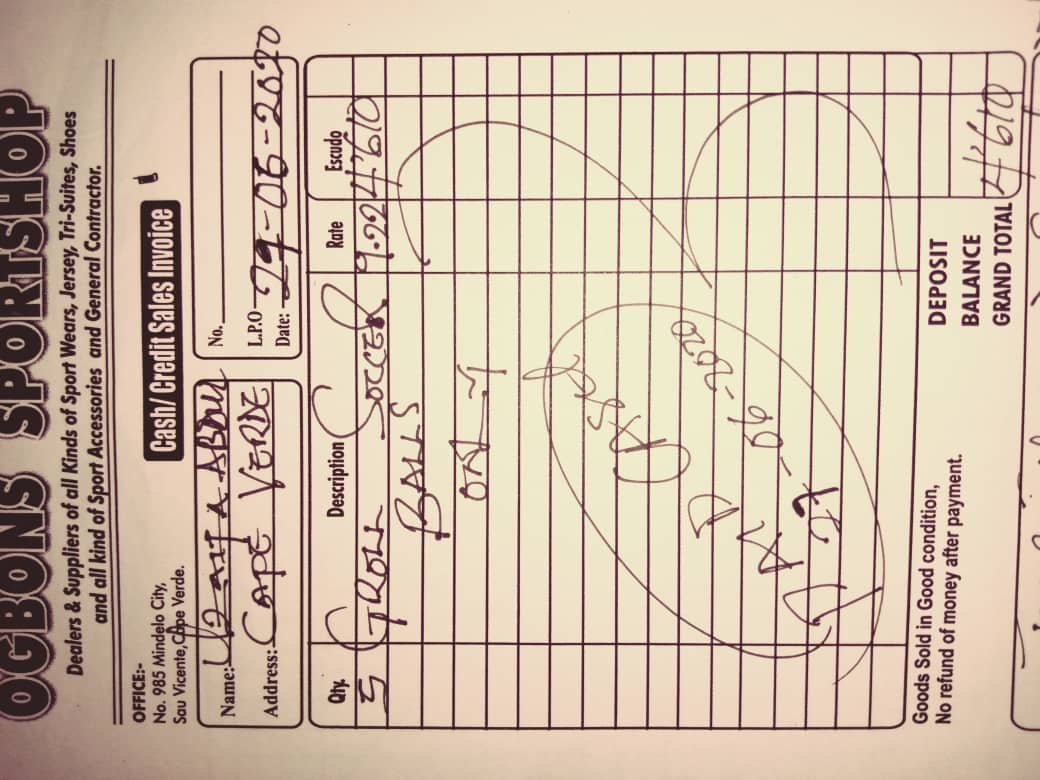 OGBONS SPORTSHOP
Dealers & Suppliers of all Kinds of Sport Wears, Jersey, Tri-Suites, Shoes
and all kind of Sport Accessories and General Contractor.
OFFICE:-
No. 985 Mindelo City,
Sau Vicente,Cape Verde.
Cash/ Credit Sales Invoice
Name:
Address: CAPE VERDE
No.
L.P.O
Date: 29-06-2020
Qty. Description Rate Escudo
5 SOCCER 9.22 4'610
BALLS
ONLY
PAID
29-06-2020
Goods Sold in Good condition,
No refund of money after payment.
DEPOSIT
BALANCE
GRAND TOTAL 4'610